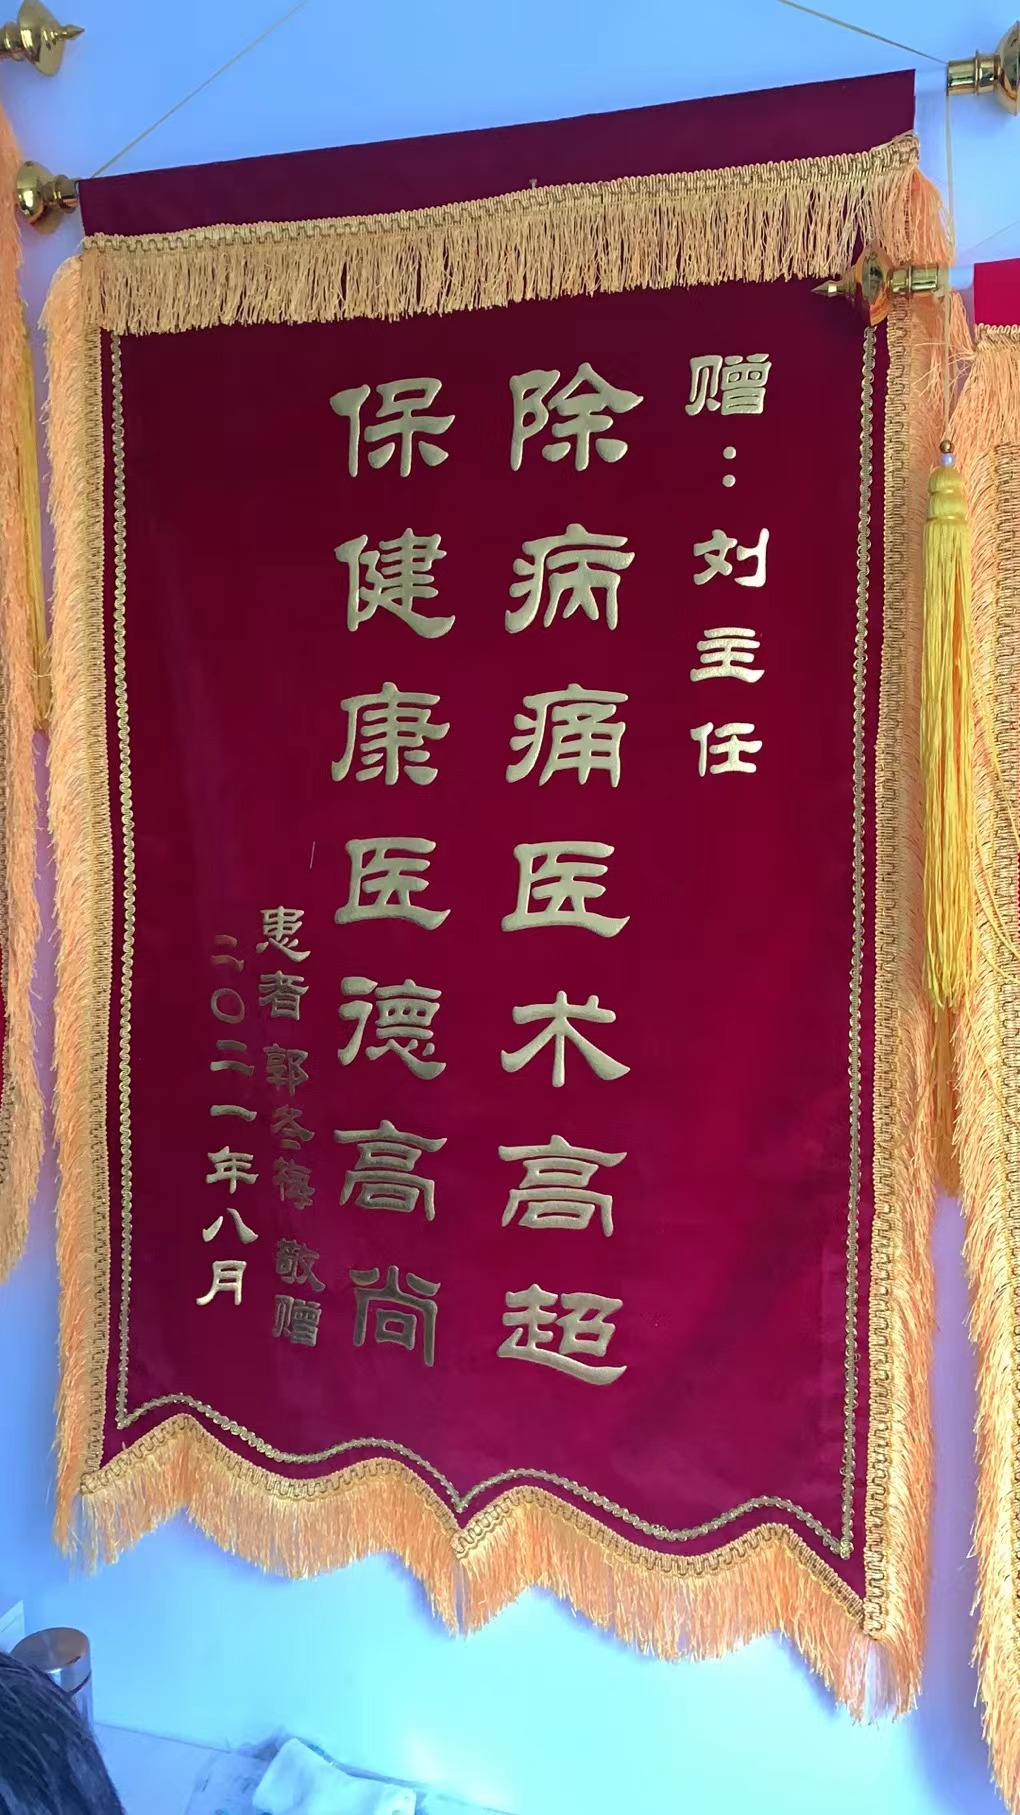 赠：刘主任
除病痛医术高超
保健康医德高尚
患者 郭冬梅 敬赠
二〇二一年八月